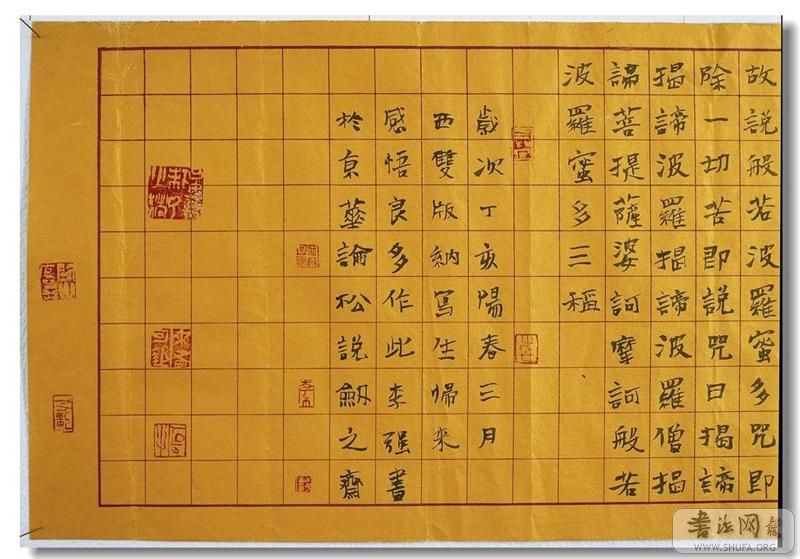 故說般若波羅蜜多咒即
除一切苦即說咒曰揭諦
揭諦波羅揭諦波羅僧揭
諦菩提薩婆訶摩訶般若
波羅蜜多三稱
歲次丁亥陽春三月
西雙版納寫生歸來
感悟良多作此李强書
於京華論松說劍之齋
書法网
WWW.SHUFA.ORG